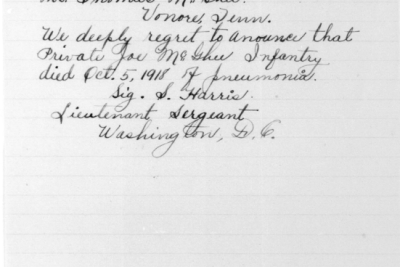 Mr. Thomas McGhee.
Vonore, Tenn.
We deeply regret to anounce that
Private Joe McGhee Infantry
died Oct. 5, 1918 of pneumonia.
Sig. S. Harris.
Lieutenant Sergeant
Washington, D.C.